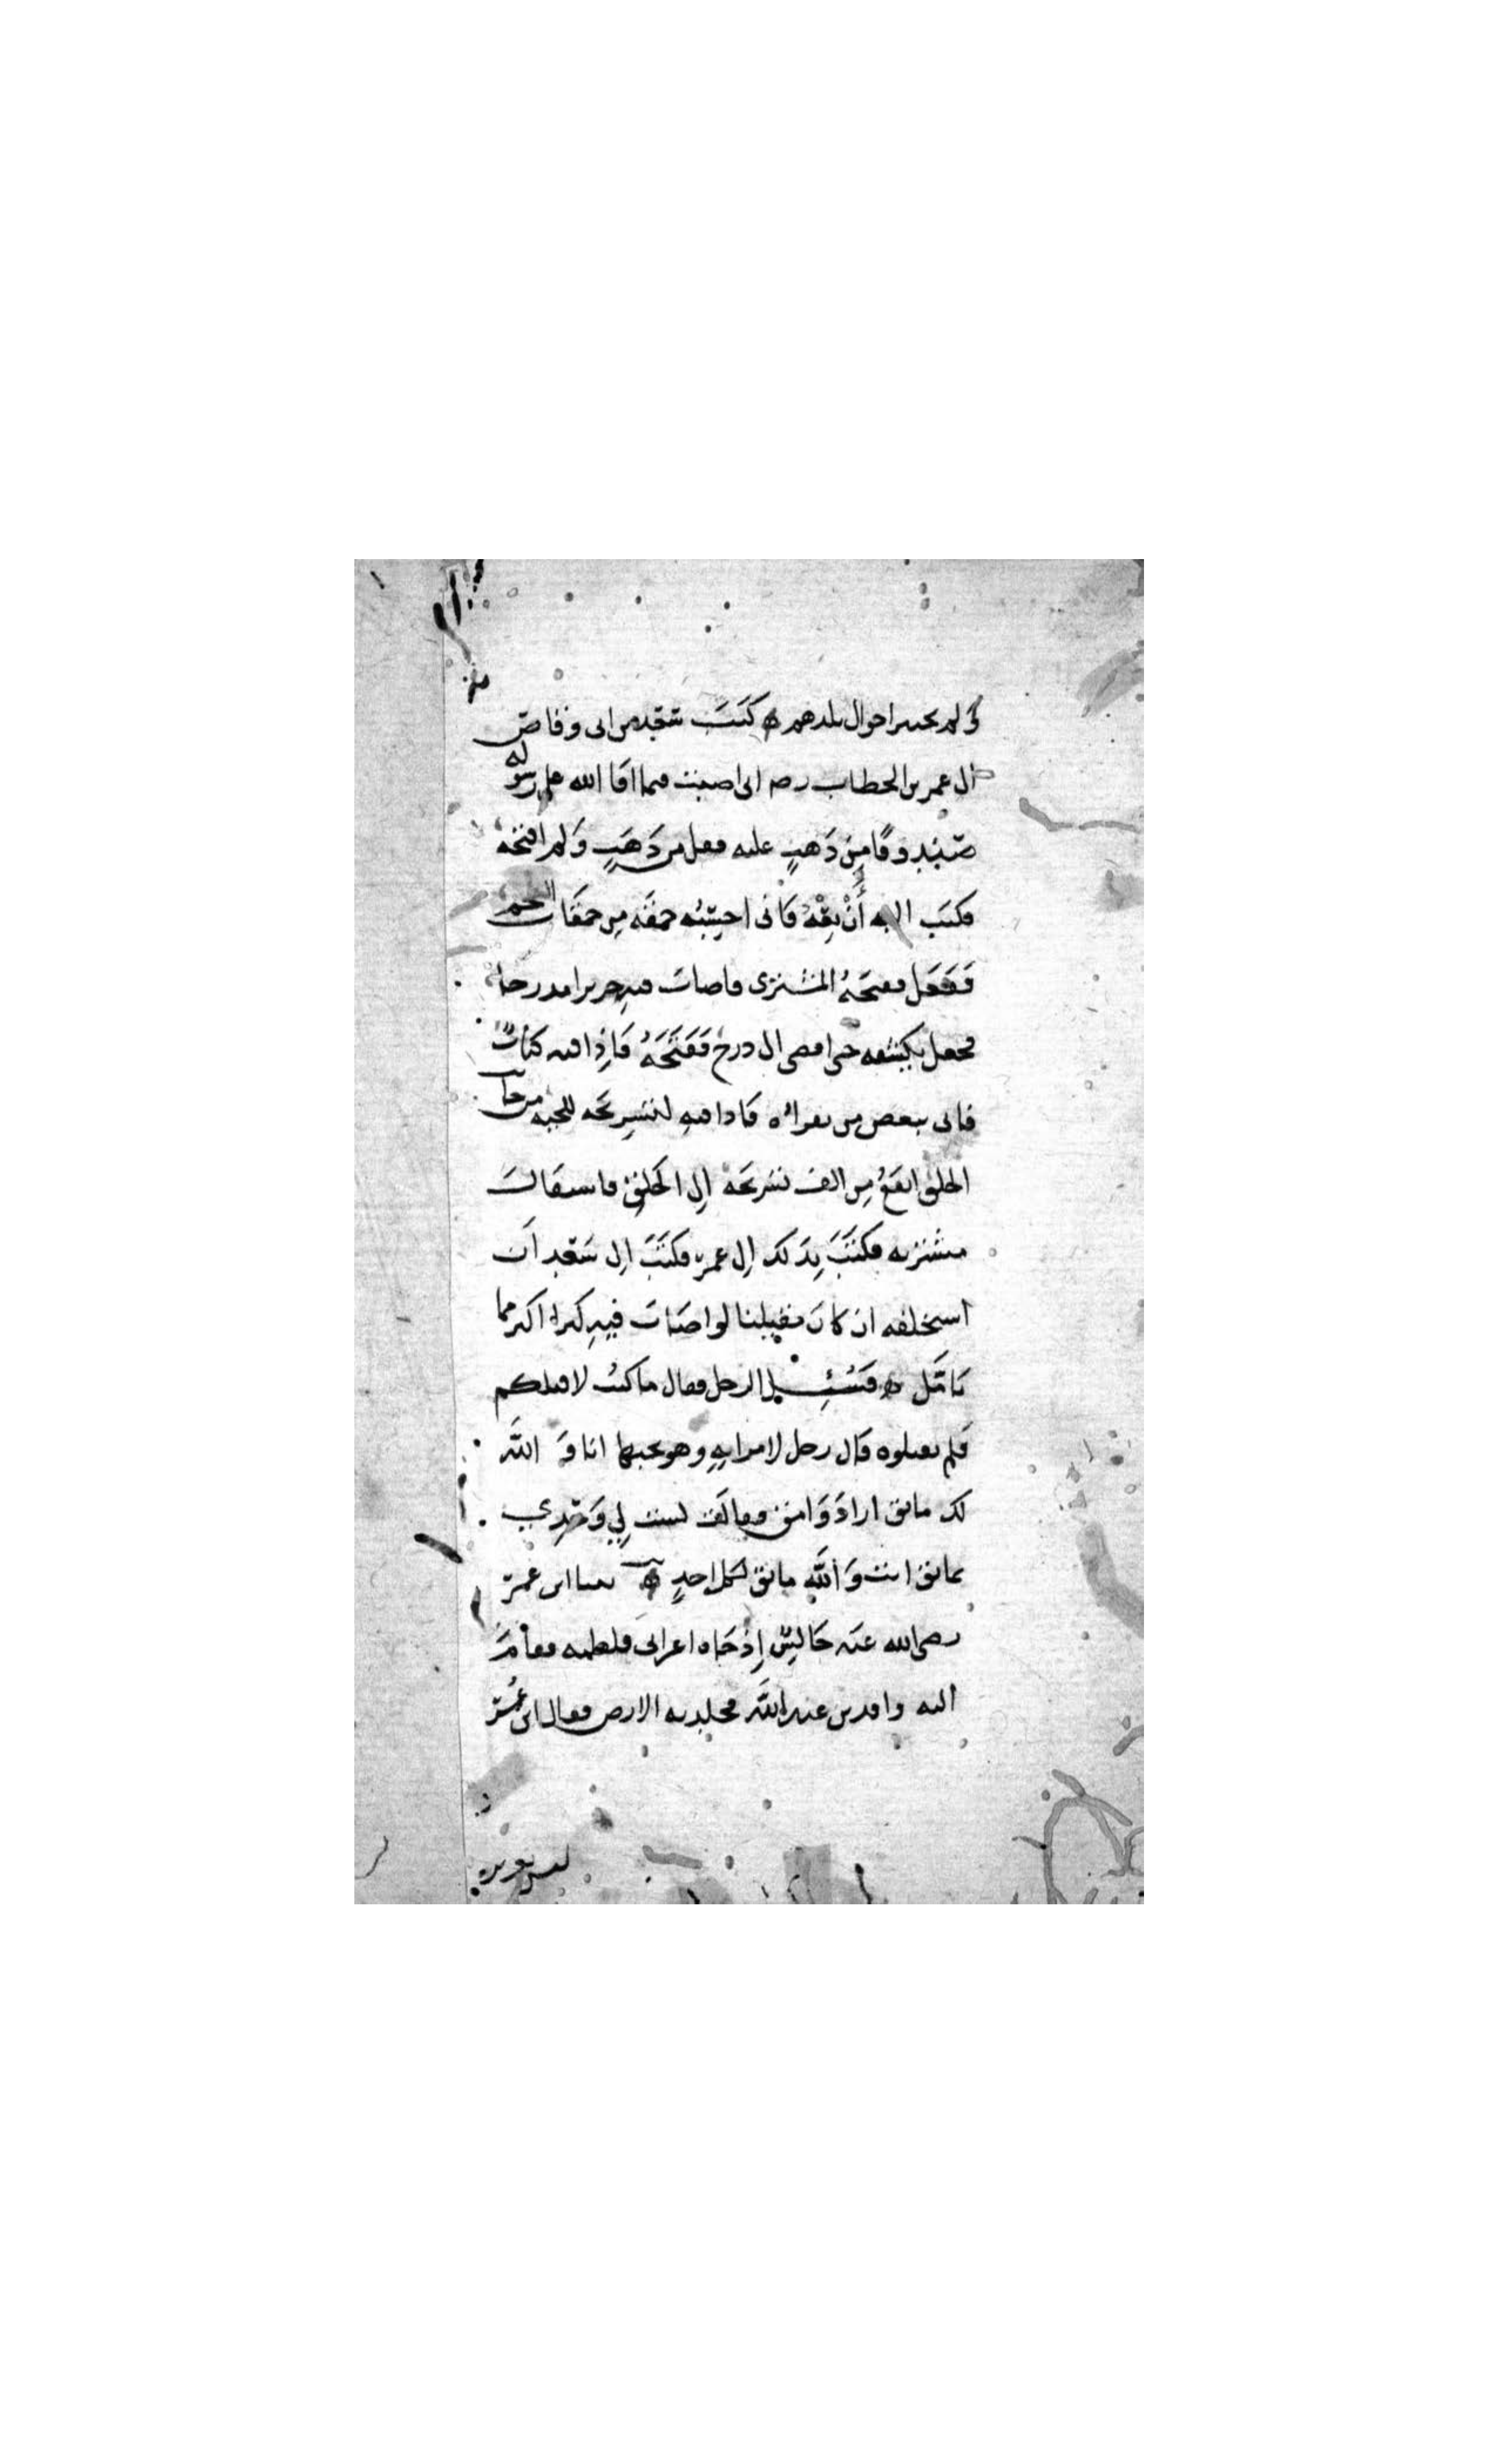 ولم يختبر احوال بلدهم كَتَبَ سَعْد بن ابى وقاص
الى عمر بن الخطاب رضه انى اصبت فيما افا الله على رسوله
صُنْدوقًا مِن ذَهبٍ عليه قفل من ذَهَبٍ وَلم افتحه
فكتبَ اليه أَنْ بِعْهُ فَانى احسِبُه حمقَه مِن حمقَات العجم
فَفَعَل ففتحَهُ المشترى فاصابَ فيهِ حريرا مدرجا
فجعل يكشفه حتى افضى الى درج فَفَتَحَهُ فَاِذا فيه كتابٌ
فاتى ببعض من يقراه فاذا فيهِ لتَسْرِيحَه للحيه من جانب
الحلق انفَعُ مِن الف تسْرِيحَه اِلى الحَلْقِ فاستقالَ
مشتريه فكَتَبَ بِذَلك اِلى عمر فكَتَبَ اِلى سَعْد اَن
استحلفه ان كانَ مُقيلنا لو اصَابَ فيهِ كنزا اكثر مما
نَامَّل فَسُئِل الرجل فقال ما كنتُ لاقيلكم
فَلم يقيلوه قال رجل لامراتِهِ وهو يحبها انا وَ اللهِ
لك مائق ارادَ وَامق فقالَت لست لِي وَحْدِي
بمائق انت وَاللهِ مائق لكل احدٍ بينا ابن عمر
رضى الله عنه جَالِسٌ اِذ جَاه اعرابى فلطمه فقامَ
اليه وافد بن عبد اللهِ فجلد به الارض فقال ابن عُمر
ليس بعزيز